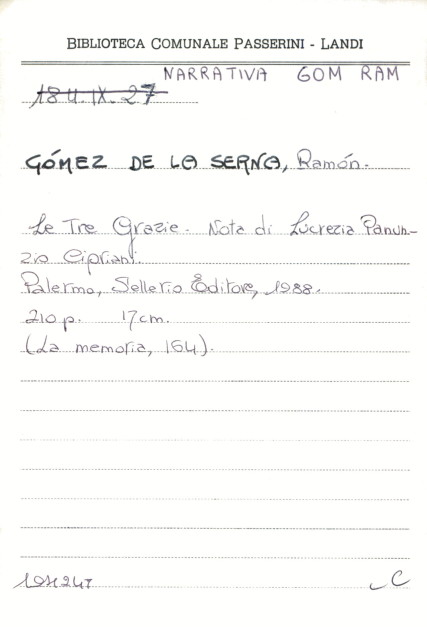 BIBLIOTECA COMUNALE PASSERINI - LANDI
NARRATIVA GOM RAM
GÓMEZ DE LA SERNA, Ramón.
Le Tre Grazie. Nota di Lucrezia Panun-
zio Cipriani.
Palermo, Sellerio Editore, 1988.
210 p. 17cm.
(La memoria, 164).
C